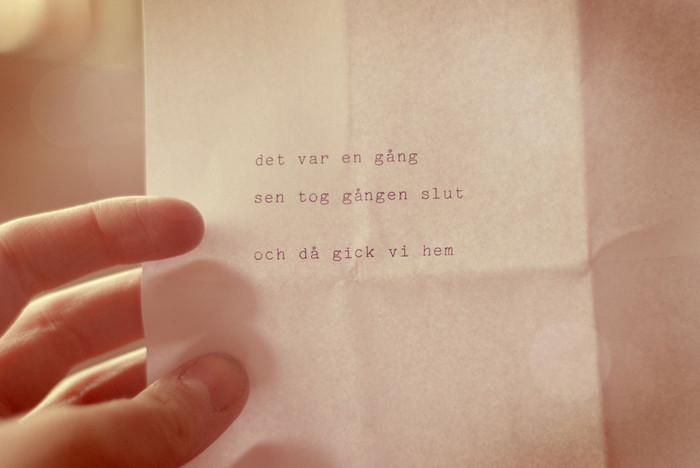 det var en gång
sen tog gången slut
och då gick vi hem